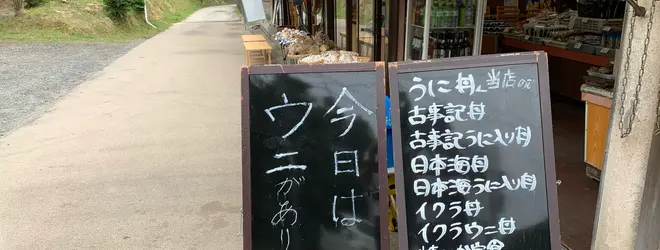 今日は
ウニがあり
うに丼 当店の
古事記丼
古事記うに入り丼
日本海丼
日本海うに入り丼
イクラ丼
イクラウニ丼